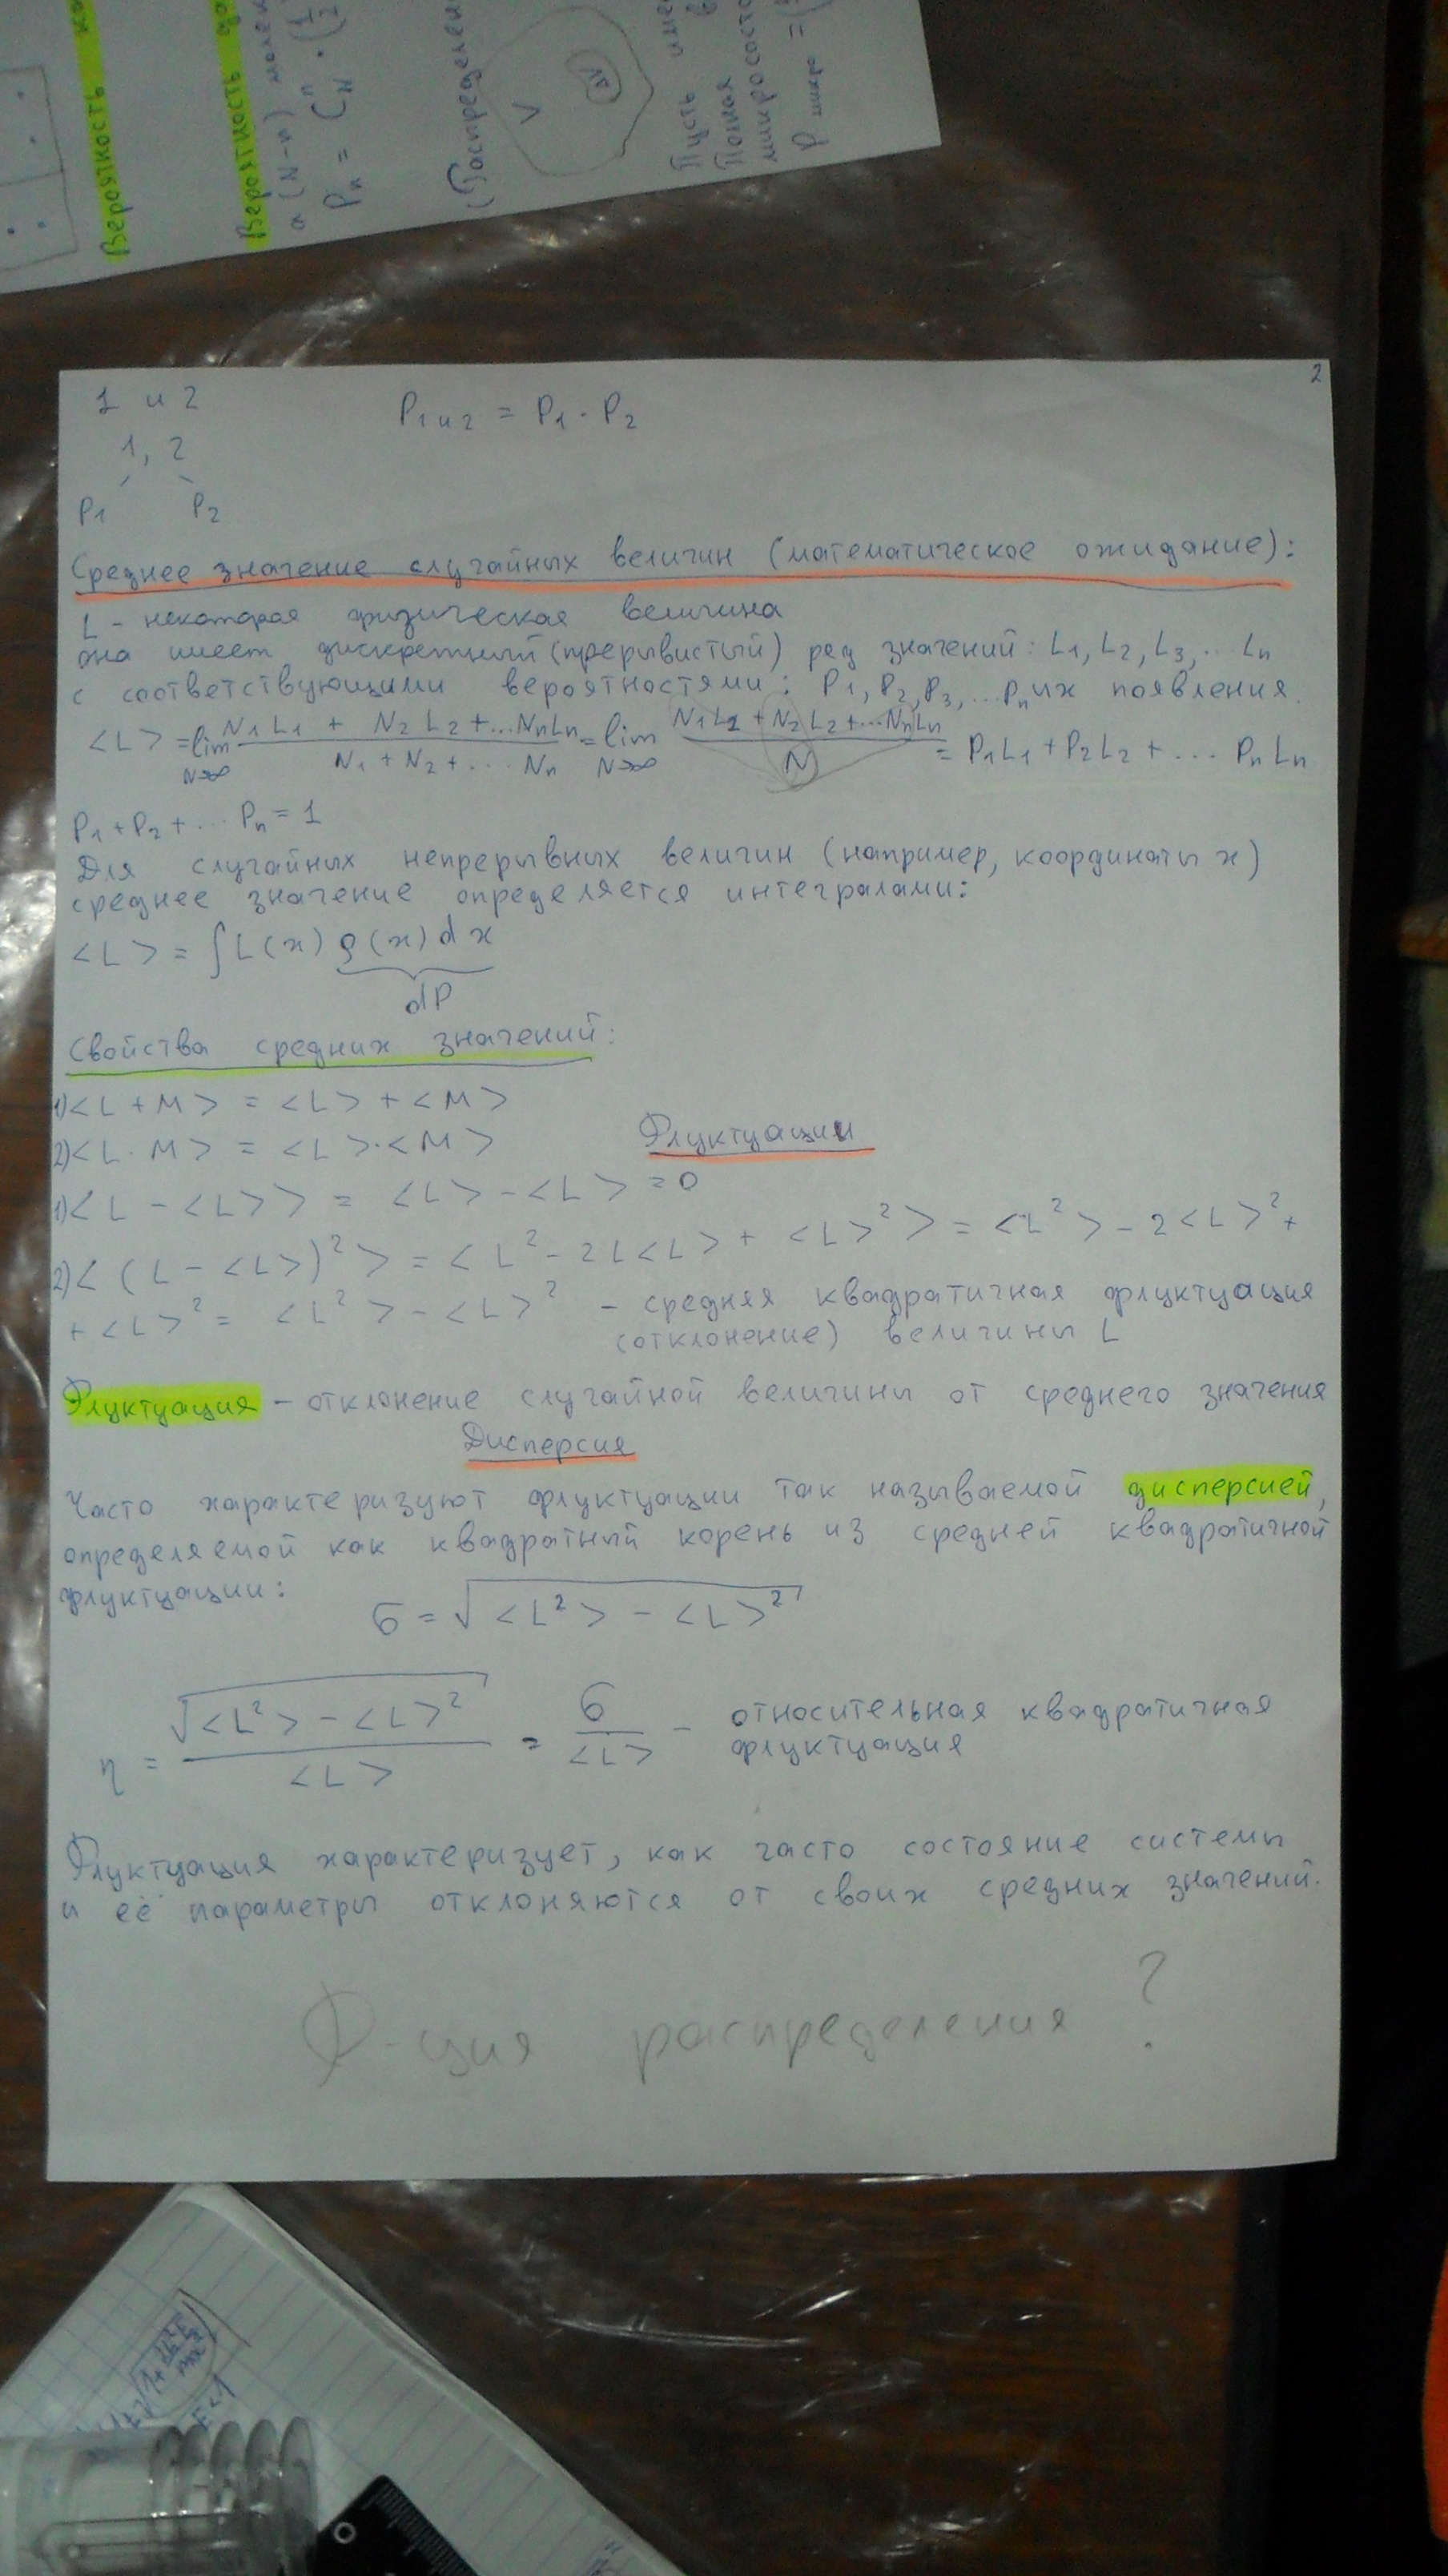 Вероятность
Вероятность
a (N-n)
Pn = C N n · (1
(Распределен
V
ΔV
Пусть
Полная
микросост
P микро = (
2
1 и 2
P1 и 2 = P1 · P2
1, 2
P1 P2
Среднее значение случайных величин (математическое ожидание):
L - некоторая физическая величина
она имеет дискретный (прерывистый) ряд значений: L1, L2, L3, ... Ln
с соответствующими вероятностями: P1, P2, P3, ... Pn их появления.
<L> = lim N→∞ (N1L1 + N2L2 + ... NnLn)/(N1 + N2 + ... Nn) = lim N→∞ (N1L1 + N2L2 + ... NnLn)/N = P1L1 + P2L2 + ... PnLn
P1 + P2 + ... Pn = 1
Для случайных непрерывных величин (например, координаты x)
среднее значение определяется интегралами:
<L> = ∫L(x) ρ(x) dx
dP
Свойства средних значений:
1) <L + M> = <L> + <M>
2) <L · M> = <L>·<M>
Флуктуации
1) <L - <L>> = <L> - <L> = 0
2) <(L - <L>)²> = <L² - 2L<L> + <L>²> = <L²> - 2<L>² +
+ <L>² = <L²> - <L>² - средняя квадратичная флуктуация
(отклонение) величины L
Флуктуация - отклонение случайной величины от среднего значения
Дисперсия
Часто характеризуют флуктуации так называемой дисперсией,
определяемой как квадратный корень из средней квадратичной
флуктуации:
σ = √(<L²> - <L>²)
η = √(<L²> - <L>²)/<L> = σ/<L> - относительная квадратичная
флуктуация
Флуктуация характеризует, как часто состояние системы
и её параметры отклоняются от своих средних значений.
Ф-ция распределения ?